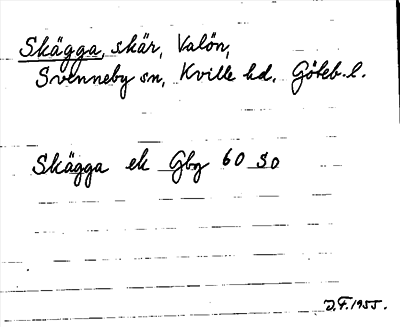 Skägga, skär, Valön,
Svenneby sn, Kville hd. Göteb. l.
Skägga ek Gbg 60 SO
D.F. 1955.